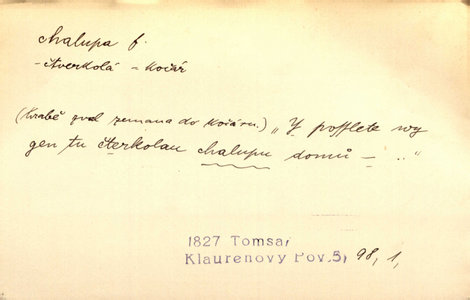 chalupa f.
- čtverkolá - kočár
(Hrabě zval zemana do kočáru.) „Y pošslete wy
gen tu čterkolau chalupu domů – ..."
1827 Tomsa,
Klaurenovy Pov.5, 98, 1,